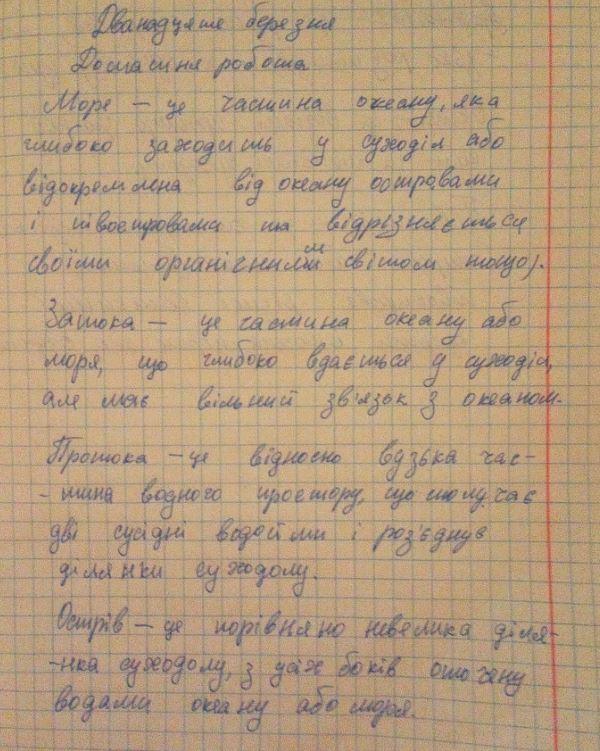 Дванадцяте березня
Домашня робота
Море – це частина океану, яка
глибоко заходить у суходіл або
відокремлена від океану островами
і півостровами та відрізняється
своїми органічним світом тощо).
Затока – це частина океану або
моря, що глибоко вдається у суходіл,
але має вільний зв'язок з океаном.
Протока – це відносно вузька час-
-тина водного простору, що сполучає
дві сусідні водойми і роз'єднує
ділянки суходолу.
Острів – це порівняно невелика діля-
-нка суходолу, з усіх боків оточену
водами океану або моря.